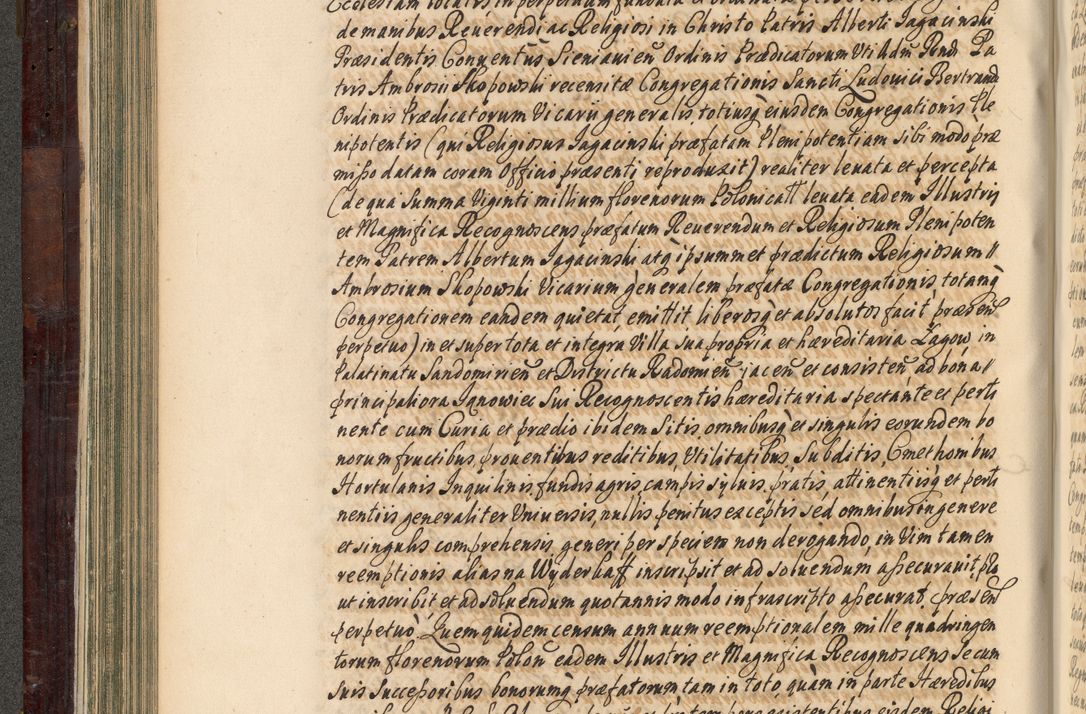 de manibus Reverendi ac Religiosi in Christo Patris Alberti Jagacinski
Præsidentis Conventûs Sieniavien̄ Ordinis Prædicatorum Uti Pa
tris Ambrosii Skopowski recensitæ Congregationis Sancti Ludovici Bertrandi
Ordinis Prædicatorum Vicarii generalis totiusq̀ eiusdem Congregationis Ple
nipotentis (qui Religiosus Jagacinski præfatam Plenipotentiam sibi modo præ
misso datam coram Officio præsenti reproduxit) realiter levata et percepta
(de qua Summa Viginti millium florenorum Polonicall levata eadem Illustris
et Magnifica Recognoscens præfatum Reverendum et Religiosum Plenipoten
tem Patrem Albertum Jagacinski atq̀ ipsummet prædictum Religiosum //
Ambrosium Skopowski Vicarium generalem præfatæ Congregationis, totanq̀
Congregationem eandem quietat, emittit liberosq̀ et absolutos facit præsen̄
perpetuo) in et super tota et integra Villa sua propria et hæreditaria Łagow in
Palatinatu Sandomirien̄ et Districtu Radomien̄ jacen̄ et consisten̄ ad bona //
principaliora Jgnowiec Sui Recognoscentis hæreditaria spectante et perti
nente cum Curia et prædio ibidem Sitis, omnibusq̀ et singulis eorundem bo
norum fructibus, proventibus reditibus, Utilitatibus, Subditis, Cmethonibus
Hortulanis Inquilinis, fundis agris, campis sylvis, pratis, attinentiisq̀ et perti
nentiis generaliter Universis, nullis penitus exceptis sed omnibus in genere
et singulis comprehensis, generi per speciem non derogando, in Vim tamen
reemptionis alias na Wyderkaff inscripsit et ad solvendum assecuravit,
ut inscribit et ad solvendum quotannis modo infrascripto assecurat, præsen̄
perpetuò, Quem quidem censum annuum reemptionalem mille quadringen
torum florenorum Polon̄ eadem Illustris et Magnifica Recognoscens Secum
suis Successoribus bonorumq̀ præfatorum tam in toto, quàm in parte Hæredibus